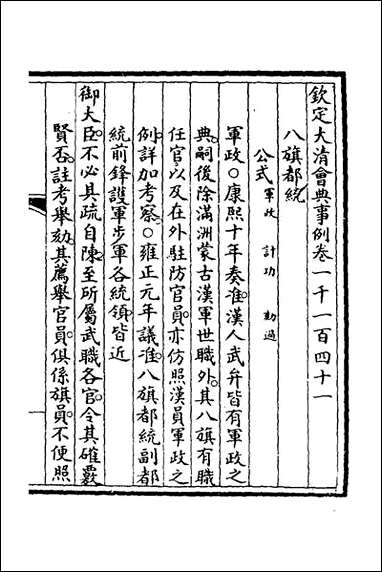 欽定大清會典事例卷一千一百四十一
八旗都統
公式軍政 計功 勸過
軍政○康熙十年奏准漢人武弁皆有軍政之
典嗣後除滿洲蒙古漢軍世職外其八旗有職
任官以及在外駐防官員亦仿照漢員軍政之
例詳加考察○雍正元年議准八旗都統副都
統前鋒護軍步軍各統領皆近
御大臣不必具疏自陳至所屬武職各官令其確覈
賢否註考舉劾其薦舉官員俱係旗員不便照